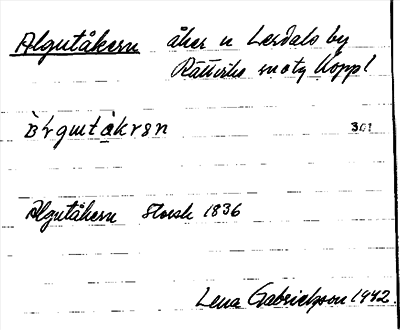 Algutåkern åker n Lerdals by
Rättviks sn o tg Koppl
301
Algutåkern Storsk 1836
Lena Gabrielsson 1942.